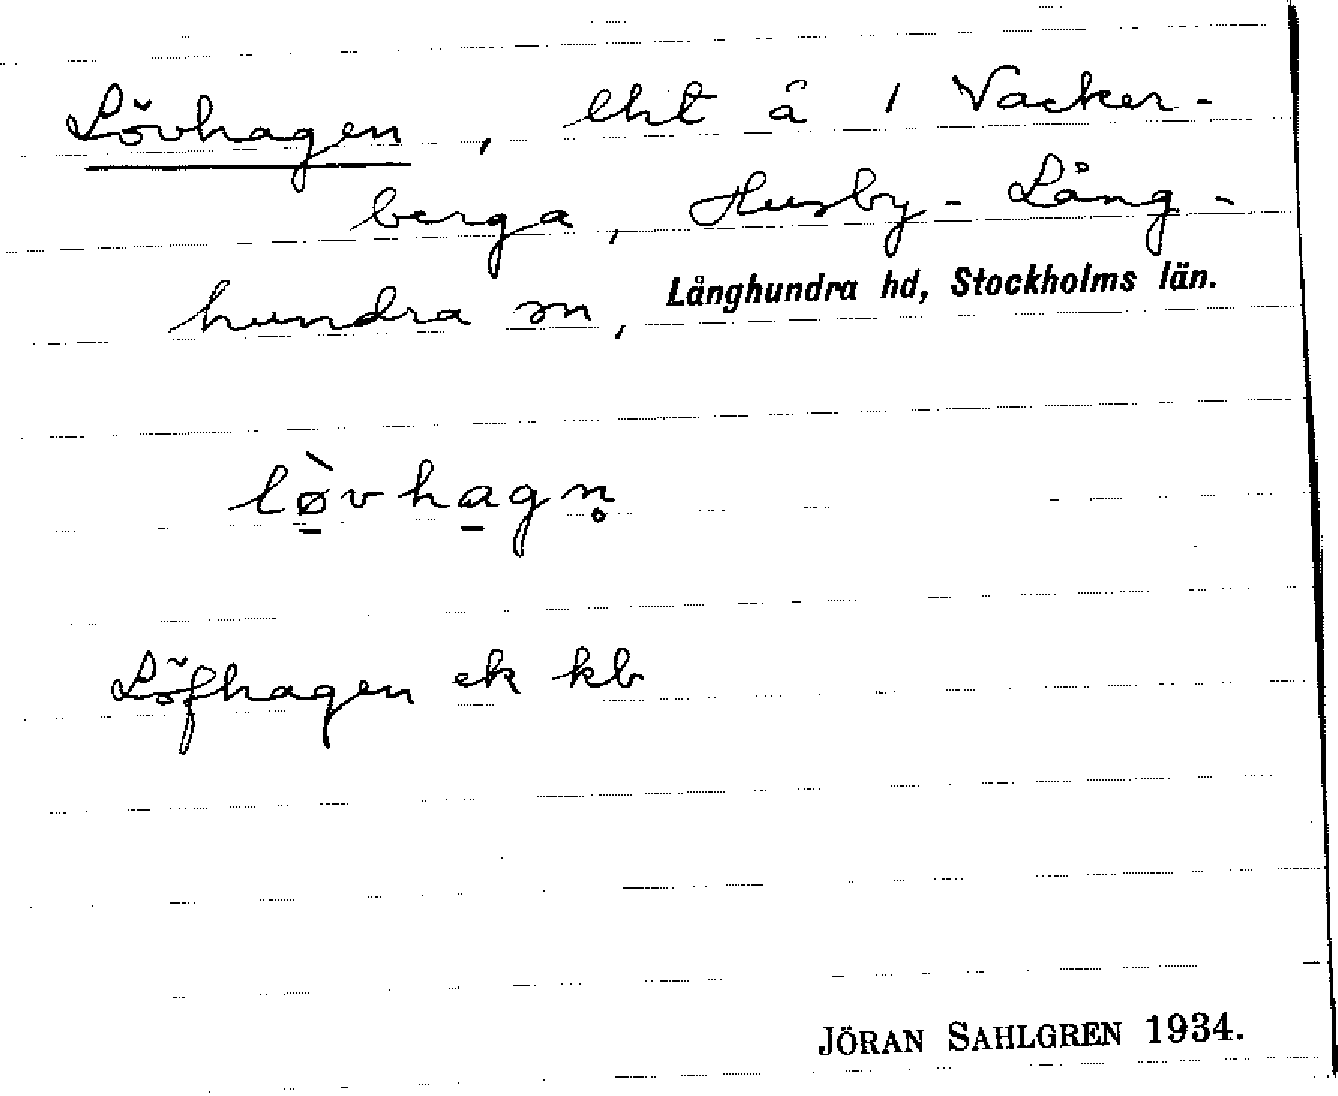 Lövhagen, lht å 1 Vacker-
berga, Husby-Lång-
hundra sn, Långhundra hd, Stockholms län.
lø̠̀vha̠gn̥
Löfhagen ek kb
JÖRAN SAHLGREN 1934.